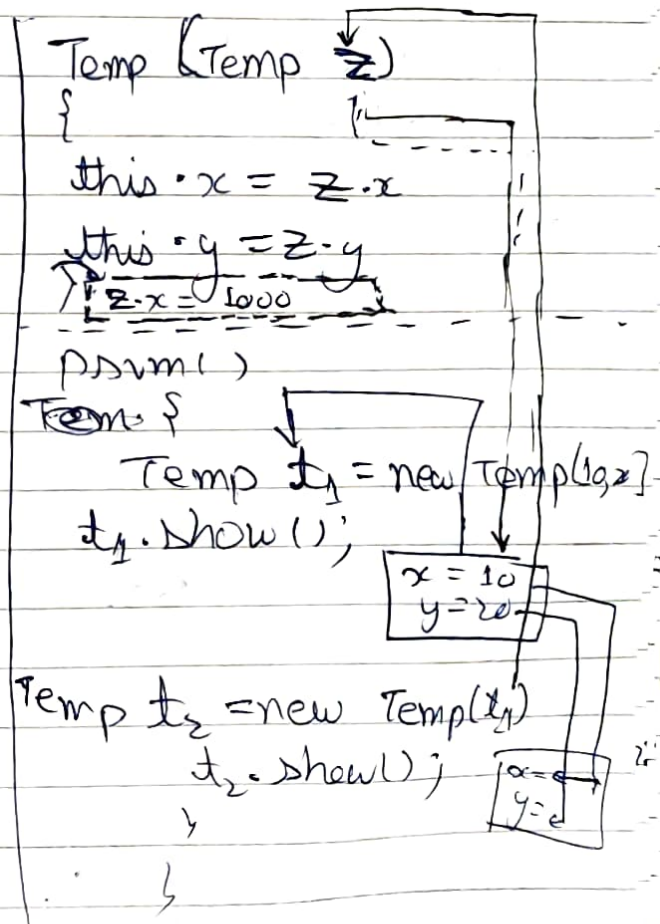 Temp (Temp z)
{
this.x = z.x
this.y = z.y
z.x = 1000
psvm()
{
Temp t1 = new Temp(10,2
t1.show();
x = 10
y = 20
Temp t2 = new Temp(t1)
t2.show();
x=
y=
}
}